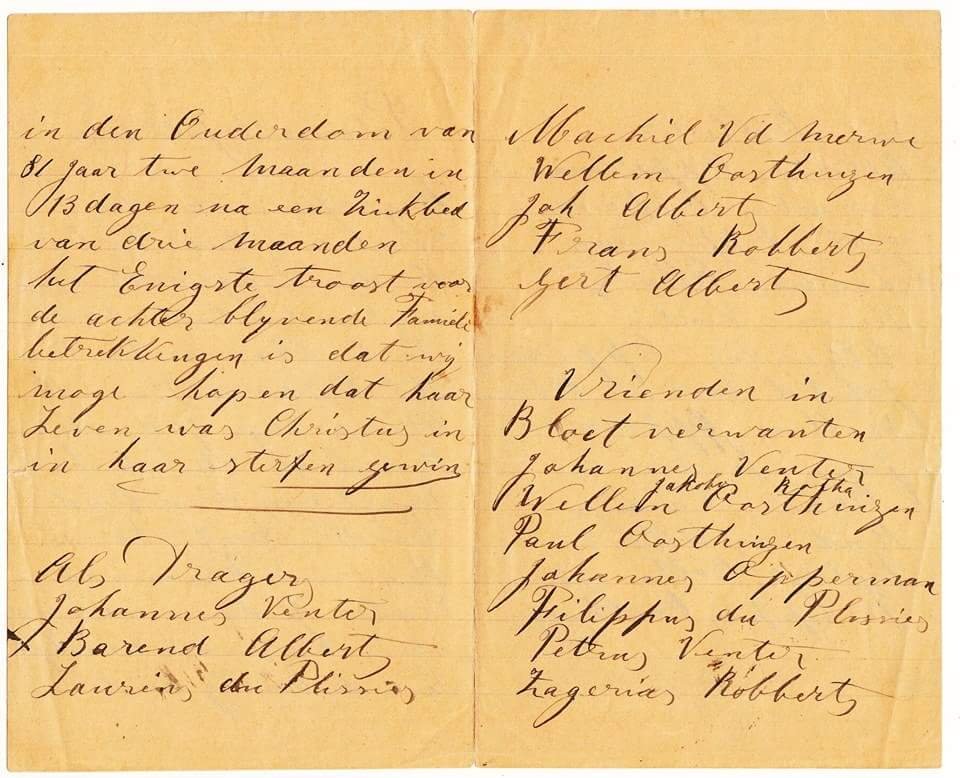 in den Ouderdom van
81 jaar twe maanden in
13 dagen na een Ziekbed
van drie maanden
het Enigste troost voor
de achter blyvende Famieli
betrekkengen is dat wij
moge hopen dat haar
Leven was Christus in
in haar sterfen gewin
Als Dragers
Johannes Venter
x Barend Alberts
Laurens du Plissies
Machiel Vd Merwe
Wellem Oosthuizen
Joh Alberts
Frans Robberts
Gert Alberts
Vrienden in
Bloet verwanten
Johannes Venter
Jakobus Botha
Wellem Oosthuizen
Paul Oosthuizen
Johannes Opperman
Filippus du Plissies
Petrus Venter
Zagerias Robberts